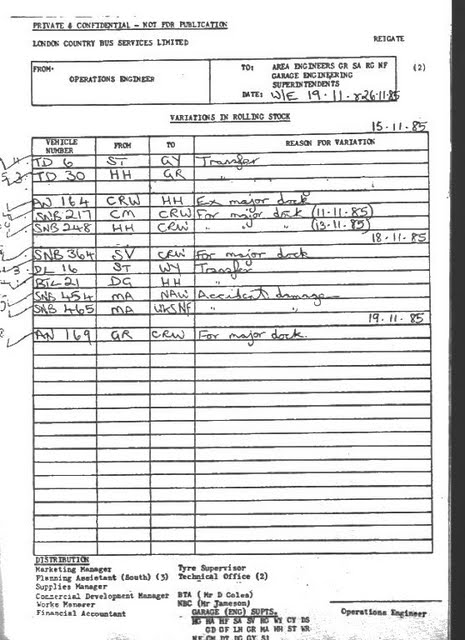 PRIVATE & CONFIDENTIAL - NOT FOR PUBLICATION
LONDON COUNTRY BUS SERVICES LIMITED REIGATE
FROM- OPERATIONS ENGINEER
TO: AREA ENGINEERS GR SA RG NF
GARAGE ENGINEERING
SUPERINTENDENTS
(2)
DATE: W/E 19.11.&26.11.85
VARIATIONS IN ROLLING STOCK
15.11.85
VEHICLE NUMBER FROM TO REASON FOR VARIATION
TD 6 ST GY Transfer
TD 30 HH GR "
AN 164 CRW HH Ex major dock
SNB 217 CM CRW For major dock (11.11.85)
SNB 248 HH CRW " " " (13.11.85)
18.11.85
SNB 364 SV CRW For major dock
DL 16 ST WY Transfer
BTL 21 DG HH "
SNB 454 MA NAW Accident damage
SNB 465 MA WKSNF " "
19.11.85
AN 169 GR CRW For major dock.
DISTRIBUTION
Marketing Manager Tyre Supervisor
Planning Assistant (South) (3) Technical Office (2)
Supplies Manager
Commercial Development Manager BTA (Mr D Coles)
Works Manager NBC (Mr Jameson)
Financial Accountant GARAGE (ENG) SUPTS.
Operations Engineer
HA HF SA SV RG WY CY DS
GD DF LH GR MA HR ST WR